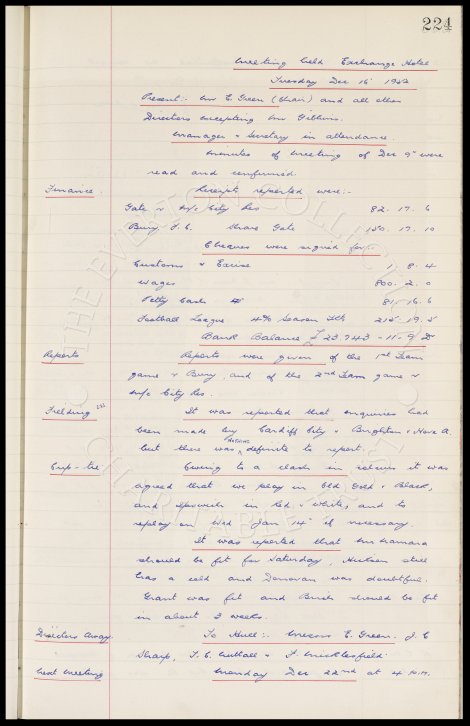 224
Meeting held Exchange Hotel
Tuesday Dec 16th 1952
Present:- Mr E. Green (Chair) and all other
Directors excepting Mr Gibbins.
Manager & Secretary in attendance.
Minutes of Meeting of Dec 9th were
read and confirmed.
Finance. Receipts reported were:-
Gate v M/c City Res 82. 17. 6
Bury F.C. Share Gate 150. 17. 10
Cheques were signed for:-
Customs & Excise 1. 8. 4
Wages 800. 2. 0
Petty Cash 81. 16. 6
Football League 4% Season Tkts 215. 19. 5
Bank Balance £23743-11-9 D
Reports Reports were given of the 1st Team
game v Bury, and of the 2nd Team game v
M/c City Res.
Fielding It was reported that enquiries had
been made by Cardiff City & Brighton & Hove A.
but there was nothing definite to report.
Cup-tie Owing to a clash in colours it was
agreed that we play in Old Gold & Black,
and Ipswich in Red & White, and to
replay on Wed Jan 14th if necessary.
It was reported that McNamara
should be fit for Saturday, Hickson still
has a cold and Donovan was doubtful.
Grant was fit and Buckle should be fit
in about 3 weeks.
Directors Away. To Hull:- Messrs E. Green, J. C
Sharp, T. C. Nuttall & F. Micklesfield.
Next Meeting Monday Dec 22nd at 4 P.M.
THE EVERTON COLLECTION
CHARITABLE TRUST